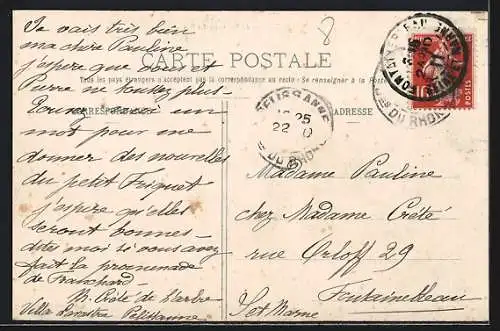 Je vais très bien
ma chère Pauline
j'espère que vous et
Pierre ne toussez plus -
un
mot pour me
donner des nouvelles
du petit Friquet
j'espère qu'elles
seront bonnes -
dites moi si vous avez
fait la promenade
de Franchard -
Villa Pélissanne
8
CARTE POSTALE
Tous les pays étrangers n'acceptent pas la correspondance au recto - Se renseigner à la Poste
CORRESPONDANCE
ADRESSE
PELISSANNE
25
22
DU RHONE
POSTES
DU RHONE
Madame Pauline
chez Madame Crété
rue Orloff 29
Fontainebleau
Set Marne